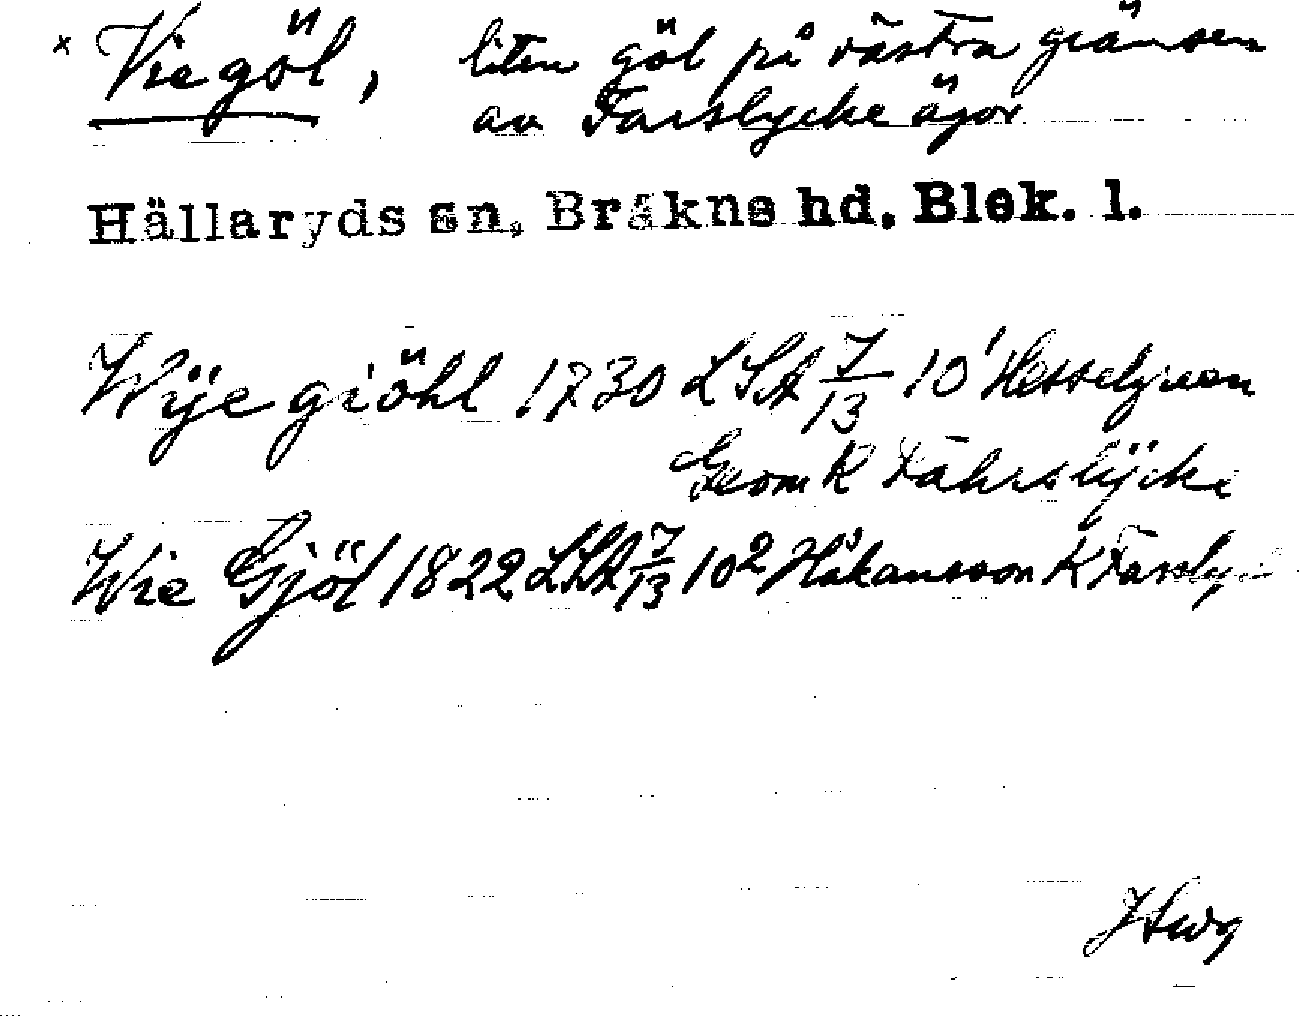 × Viegöl, liten göl på västra gränsen
av Farslycke ägor
Hällaryds sn, Bräkne hd. Blek. l.
Wÿe giöhl 1730 LSA 7/13 10¹ Hesselgreen
Geom K Fährslÿcke
Wie Gjöl 1822 LSA 7/13 10² Håkansson K Farsly